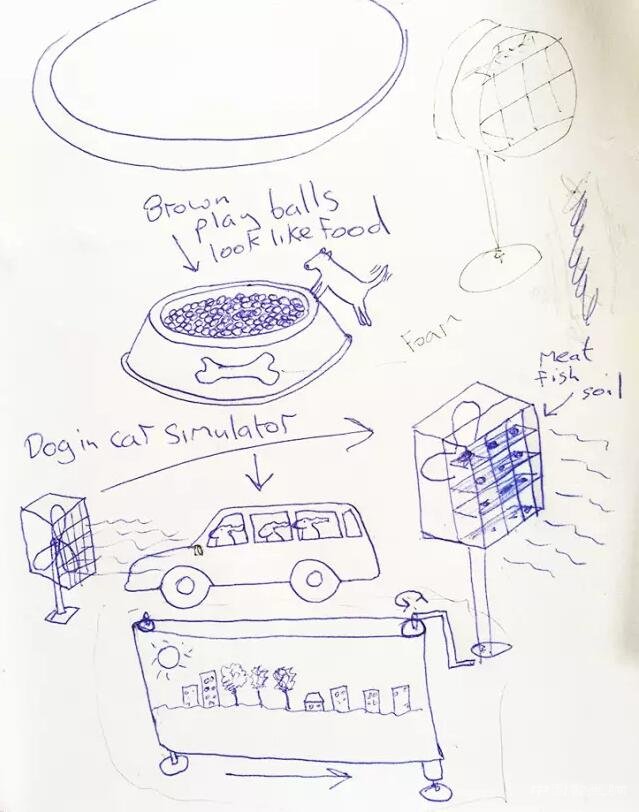 Brown
play balls
look like food
Foam
Meat
fish
soil
Dog in car simulator